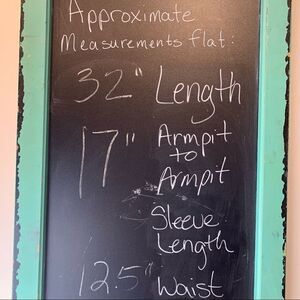 Approximate
Measurements flat:
32" Length
17" Armpit
to
Armpit
Sleeve
Length
12.5" Waist